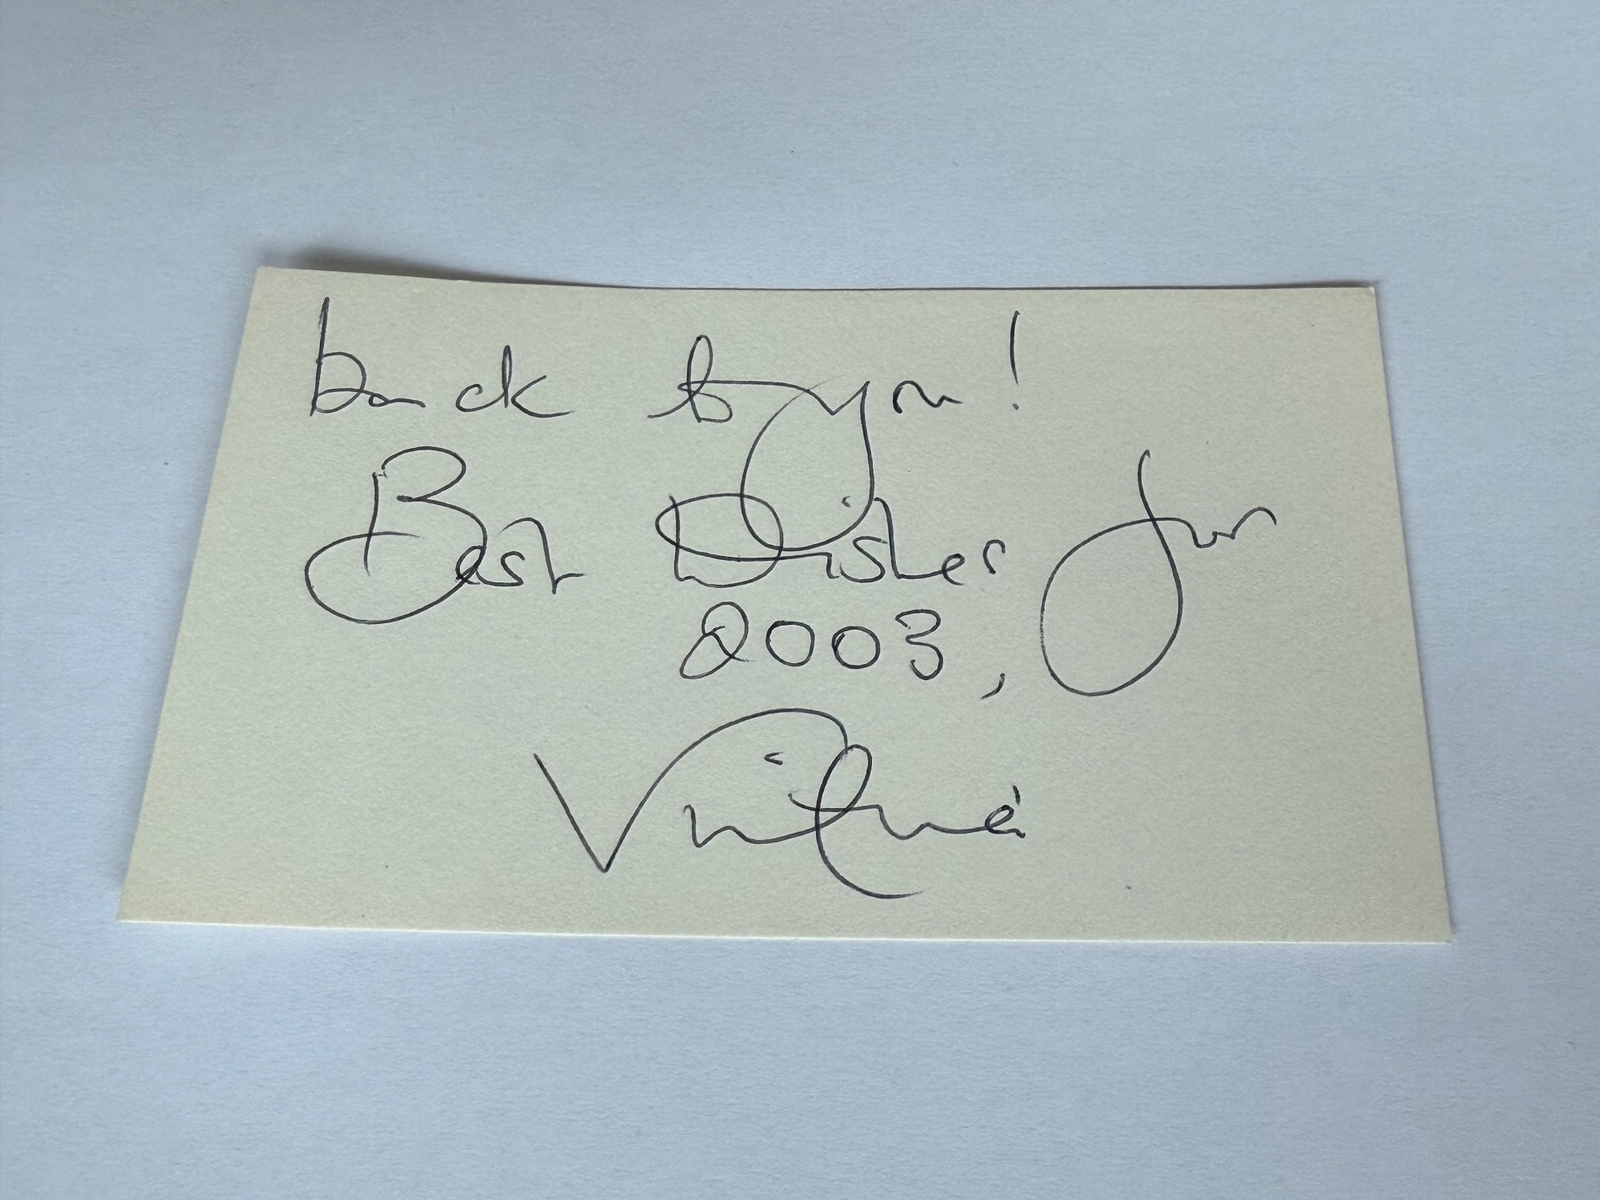 back to you!
Best Wishes for
2003,